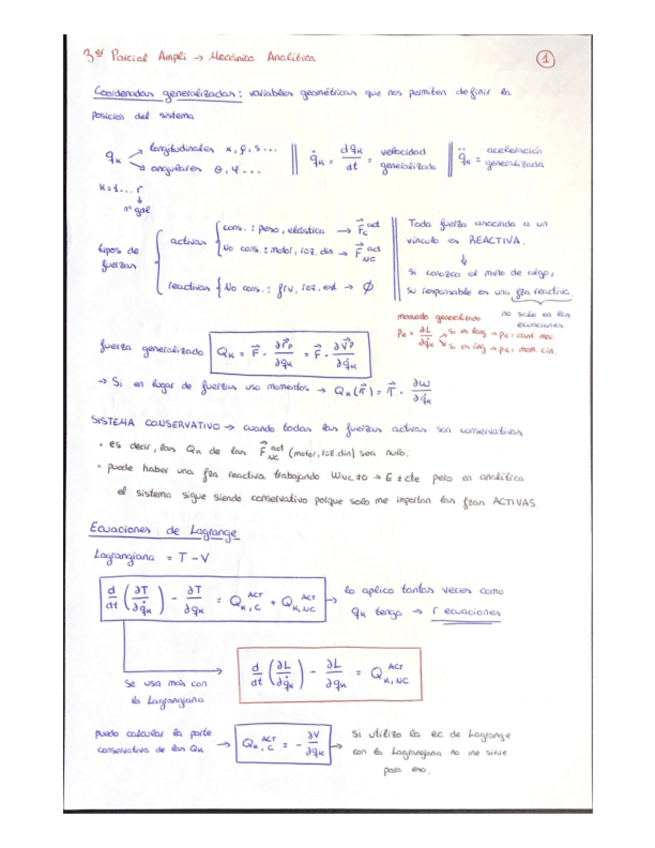 3er Parcial Ampli → Mecánica Analítica
1
Coordenadas generalizadas: variables geométricas que nos permiten definir la
posición del sistema
qk → longitudinales x, ρ, s...
→ angulares θ, φ...
q̇k = dqk/dt = velocidad generalizada
q̈k = aceleración generalizada
k=1...r
↓
nº gdl
tipos de fuerzas
activas { cons.: peso, elástica → F⃗c act
No cons.: motor, roz. din → F⃗NC act
reactivas { No cons.: frv, roz. est → ∅
Toda fuerza asociada a un
vínculo es REACTIVA.
↓
si conozco el mvto de algo,
su responsable es una fza reactiva
no sale en las
ecuaciones
momento generalizado
pk = ∂L/∂q̇k → si es long → pk = cant. mov.
→ si es áng → pk = mom. cin.
fuerza generalizada Qk = F⃗ · ∂r⃗p/∂qk = F⃗ · ∂v⃗p/∂q̇k
→ Si en lugar de fuerzas uso momentos → Qk(π⃗) = π⃗ · ∂ω/∂q̇k
SISTEMA CONSERVATIVO → cuando todas las fuerzas activas son conservativas
• es decir, las Qk de las F⃗NC act (motor, roz. din) sea nula.
• puede haber una fza reactiva trabajando WNC≠0 → E≠cte pero en analítica
el sistema sigue siendo conservativo porque solo me importan las fzas ACTIVAS.
Ecuaciones de Lagrange
Lagrangiana = T - V
d/dt (∂T/∂q̇k) - ∂T/∂qk = Qk,C ACT + Qk,NC ACT → lo aplico tantas veces como
qk tenga → r ecuaciones
Se usa más con
la Lagrangiana
d/dt (∂L/∂q̇k) - ∂L/∂qk = Qk,NC ACT
puedo calcular la parte
conservativa de las Qk → Qk,C ACT = - ∂V/∂qk →
Si utilizo la ec de Lagrange
con la Lagrangiana no me sirve
para eso.